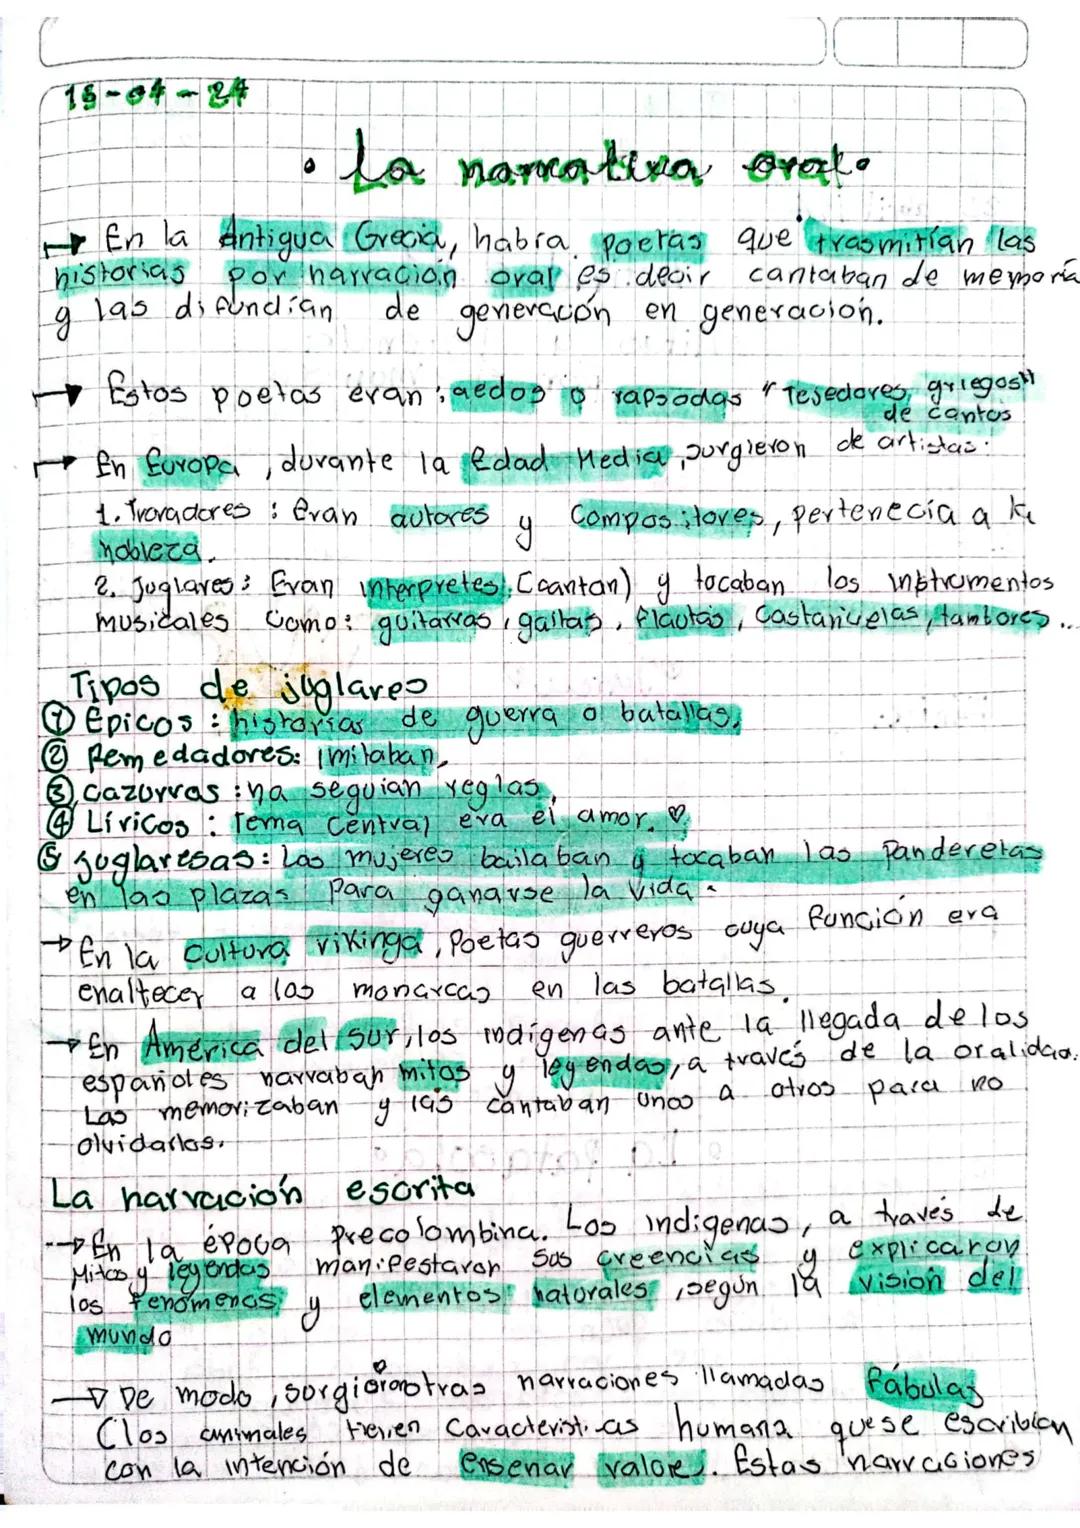 15-04-24
• La narrativa oral•
→ En la Antigua Grecia, había poetas que trasmitían las
historias por narración oral es decir cantaban de memoria
y las difundían de generación en generación.
→ Estos poetas eran: aedos o rapsodas "Tejedores griegos"
de cantos
→ En Europa, durante la Edad Media, surgieron de artistas:
1. Trovadores: Eran autores y Compositores, pertenecía a la
nobleza.
2. Juglares: Eran interpretes (cantan) y tocaban los instrumentos
musicales Como: guitarras, gaitas, flautas, Castañuelas, tambores...
Tipos de juglares
① Épicos: historias de guerra o batallas.
② Remedadores: Imitaban.
③ cazurros: no seguian reglas.
④ Líricos: Tema Central era el amor. ♡
⑤ juglaresas: Las mujeres bailaban y tocaban las Panderetas
en las plazas Para ganarse la vida.
→ En la Cultura vikinga, Poetas guerreros cuya función era
enaltecer a los monarcas en las batallas.
→ En América del Sur, los indígenas ante la llegada de los
españoles narraban mitos y leyendas, a través de la oralidad.
Las memorizaban y las cantaban unos a otros para no
olvidarlos.
La narración escrita
→ En la época precolombina. Los indigenas, a través de
Mitos y leyendas manifestaron sus creencias y explicaron
los fenómenos y elementos naturales, según la visión del
mundo
→ De modo, surgieron otras narraciones llamadas Fábulas
(los animales tienen Caracteristicas humana que se escribían
con la intención de enseñar valores. Estas narraciones